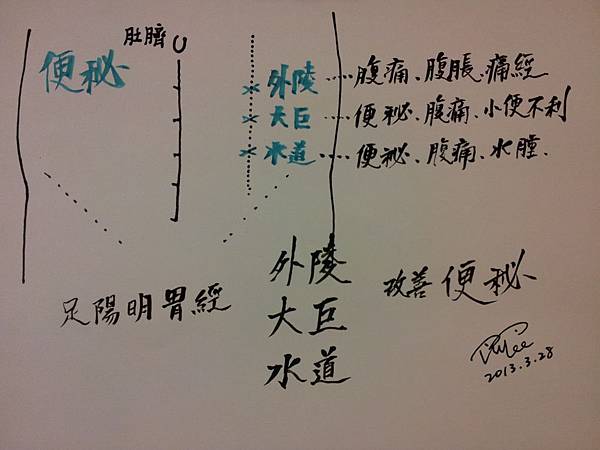 肚臍
便秘
外陵 ····· 腹痛、腹脹、痛經
大巨 ···· 便秘、腹痛、小便不利
水道 ···· 便秘、腹痛、水腫.
外陵
足陽明胃經 大巨 改善便秘
水道
2013.3.28